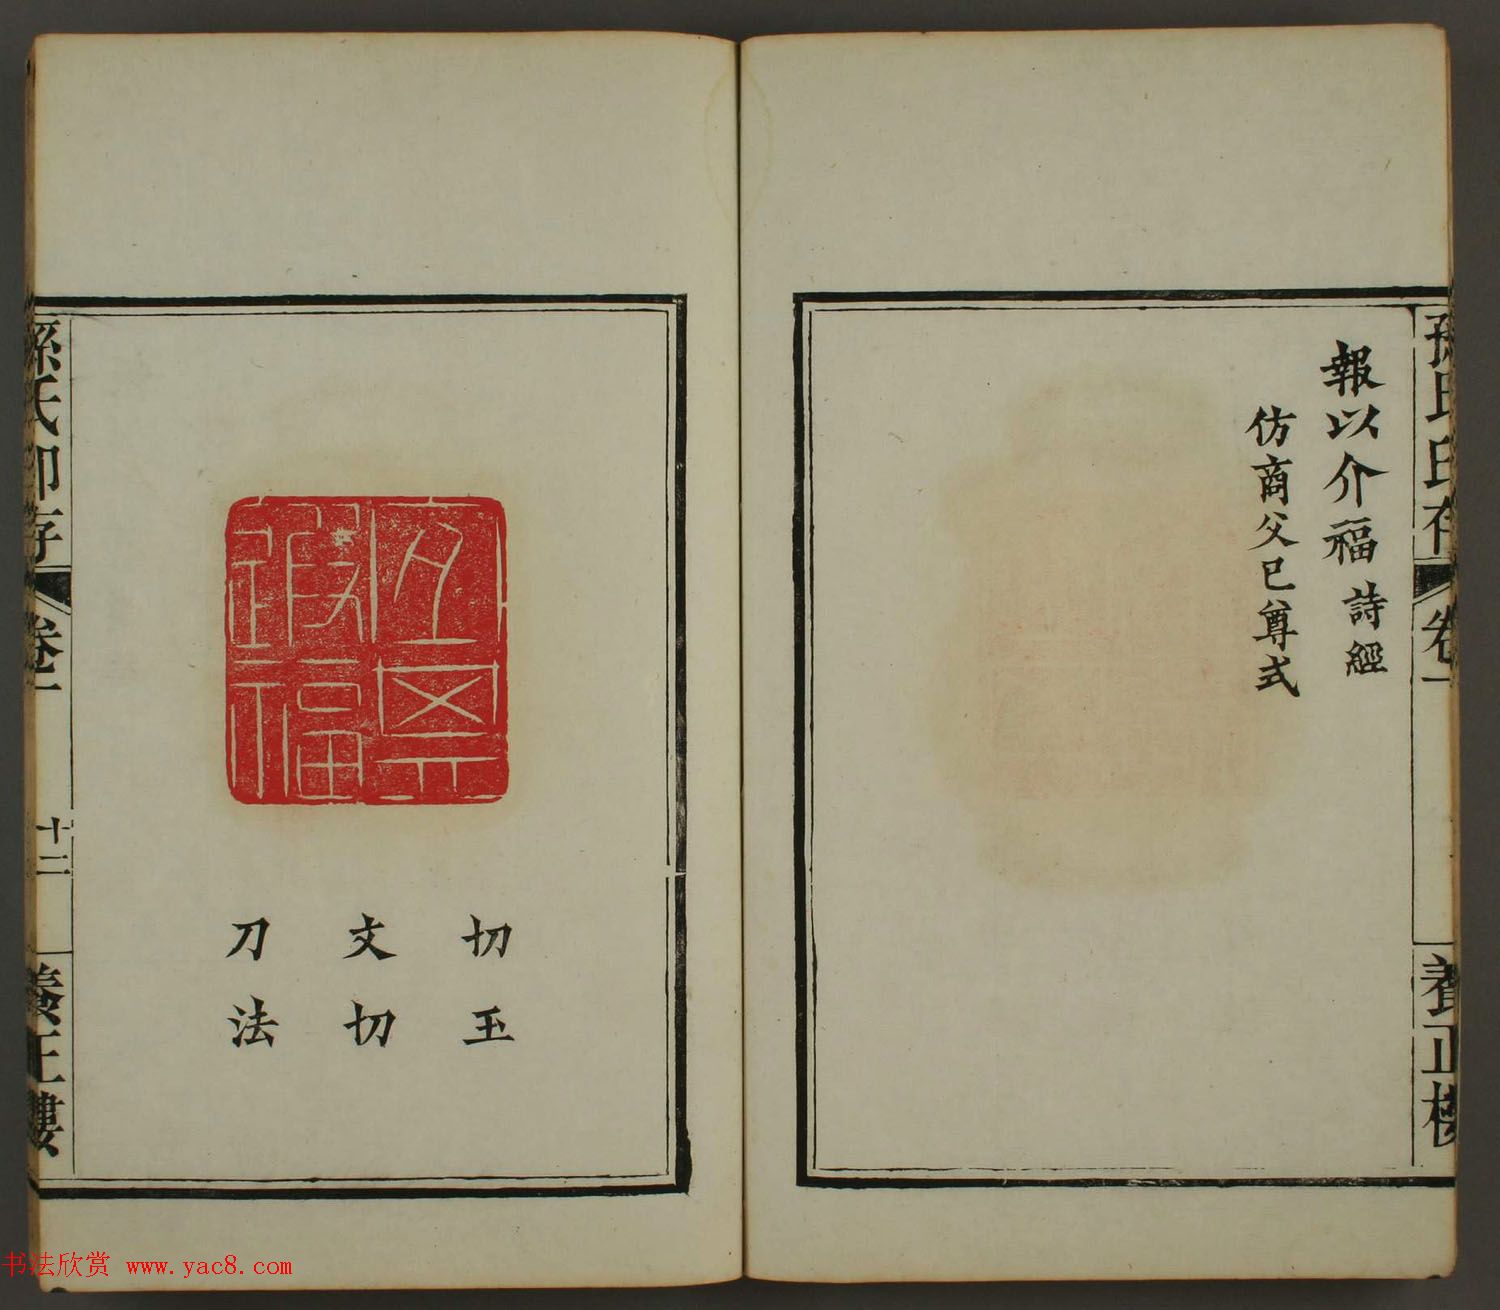 孫氏印存 卷一 養正樓
報以介福 詩經
仿商父已尊式
切玉
文切
刀法
孫氏印存 卷一 十二 養正樓
书法欣赏 www.yac8.com